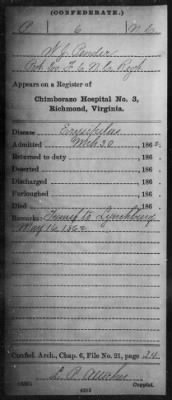 (CONFEDERATE.)
P 6 N.C.
W. J. Pender
Co. F. 6 N.C. Regt
Appears on a Register of
Chimborazo Hospital No. 3,
Richmond, Virginia.
Disease Erysipelas
Admitted Mch 30, 186 2.
Returned to duty, 186 .
Deserted, 186 .
Discharged, 186 .
Furloughed, 186 .
Died, 186 .
Remarks: Transf to Lynchburg
May 16, 1862
Confed. Arch., Chap. 6, File No. 21, page 24
Copyist.